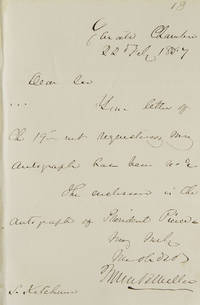 13
Senate Chamber
22d Feby 1857
Dear Sir
Your letter of
the 19th inst requesting my
Autograph has been
The enclosed is the
Autograph of President Pierce
Very truly
S. Ketcham